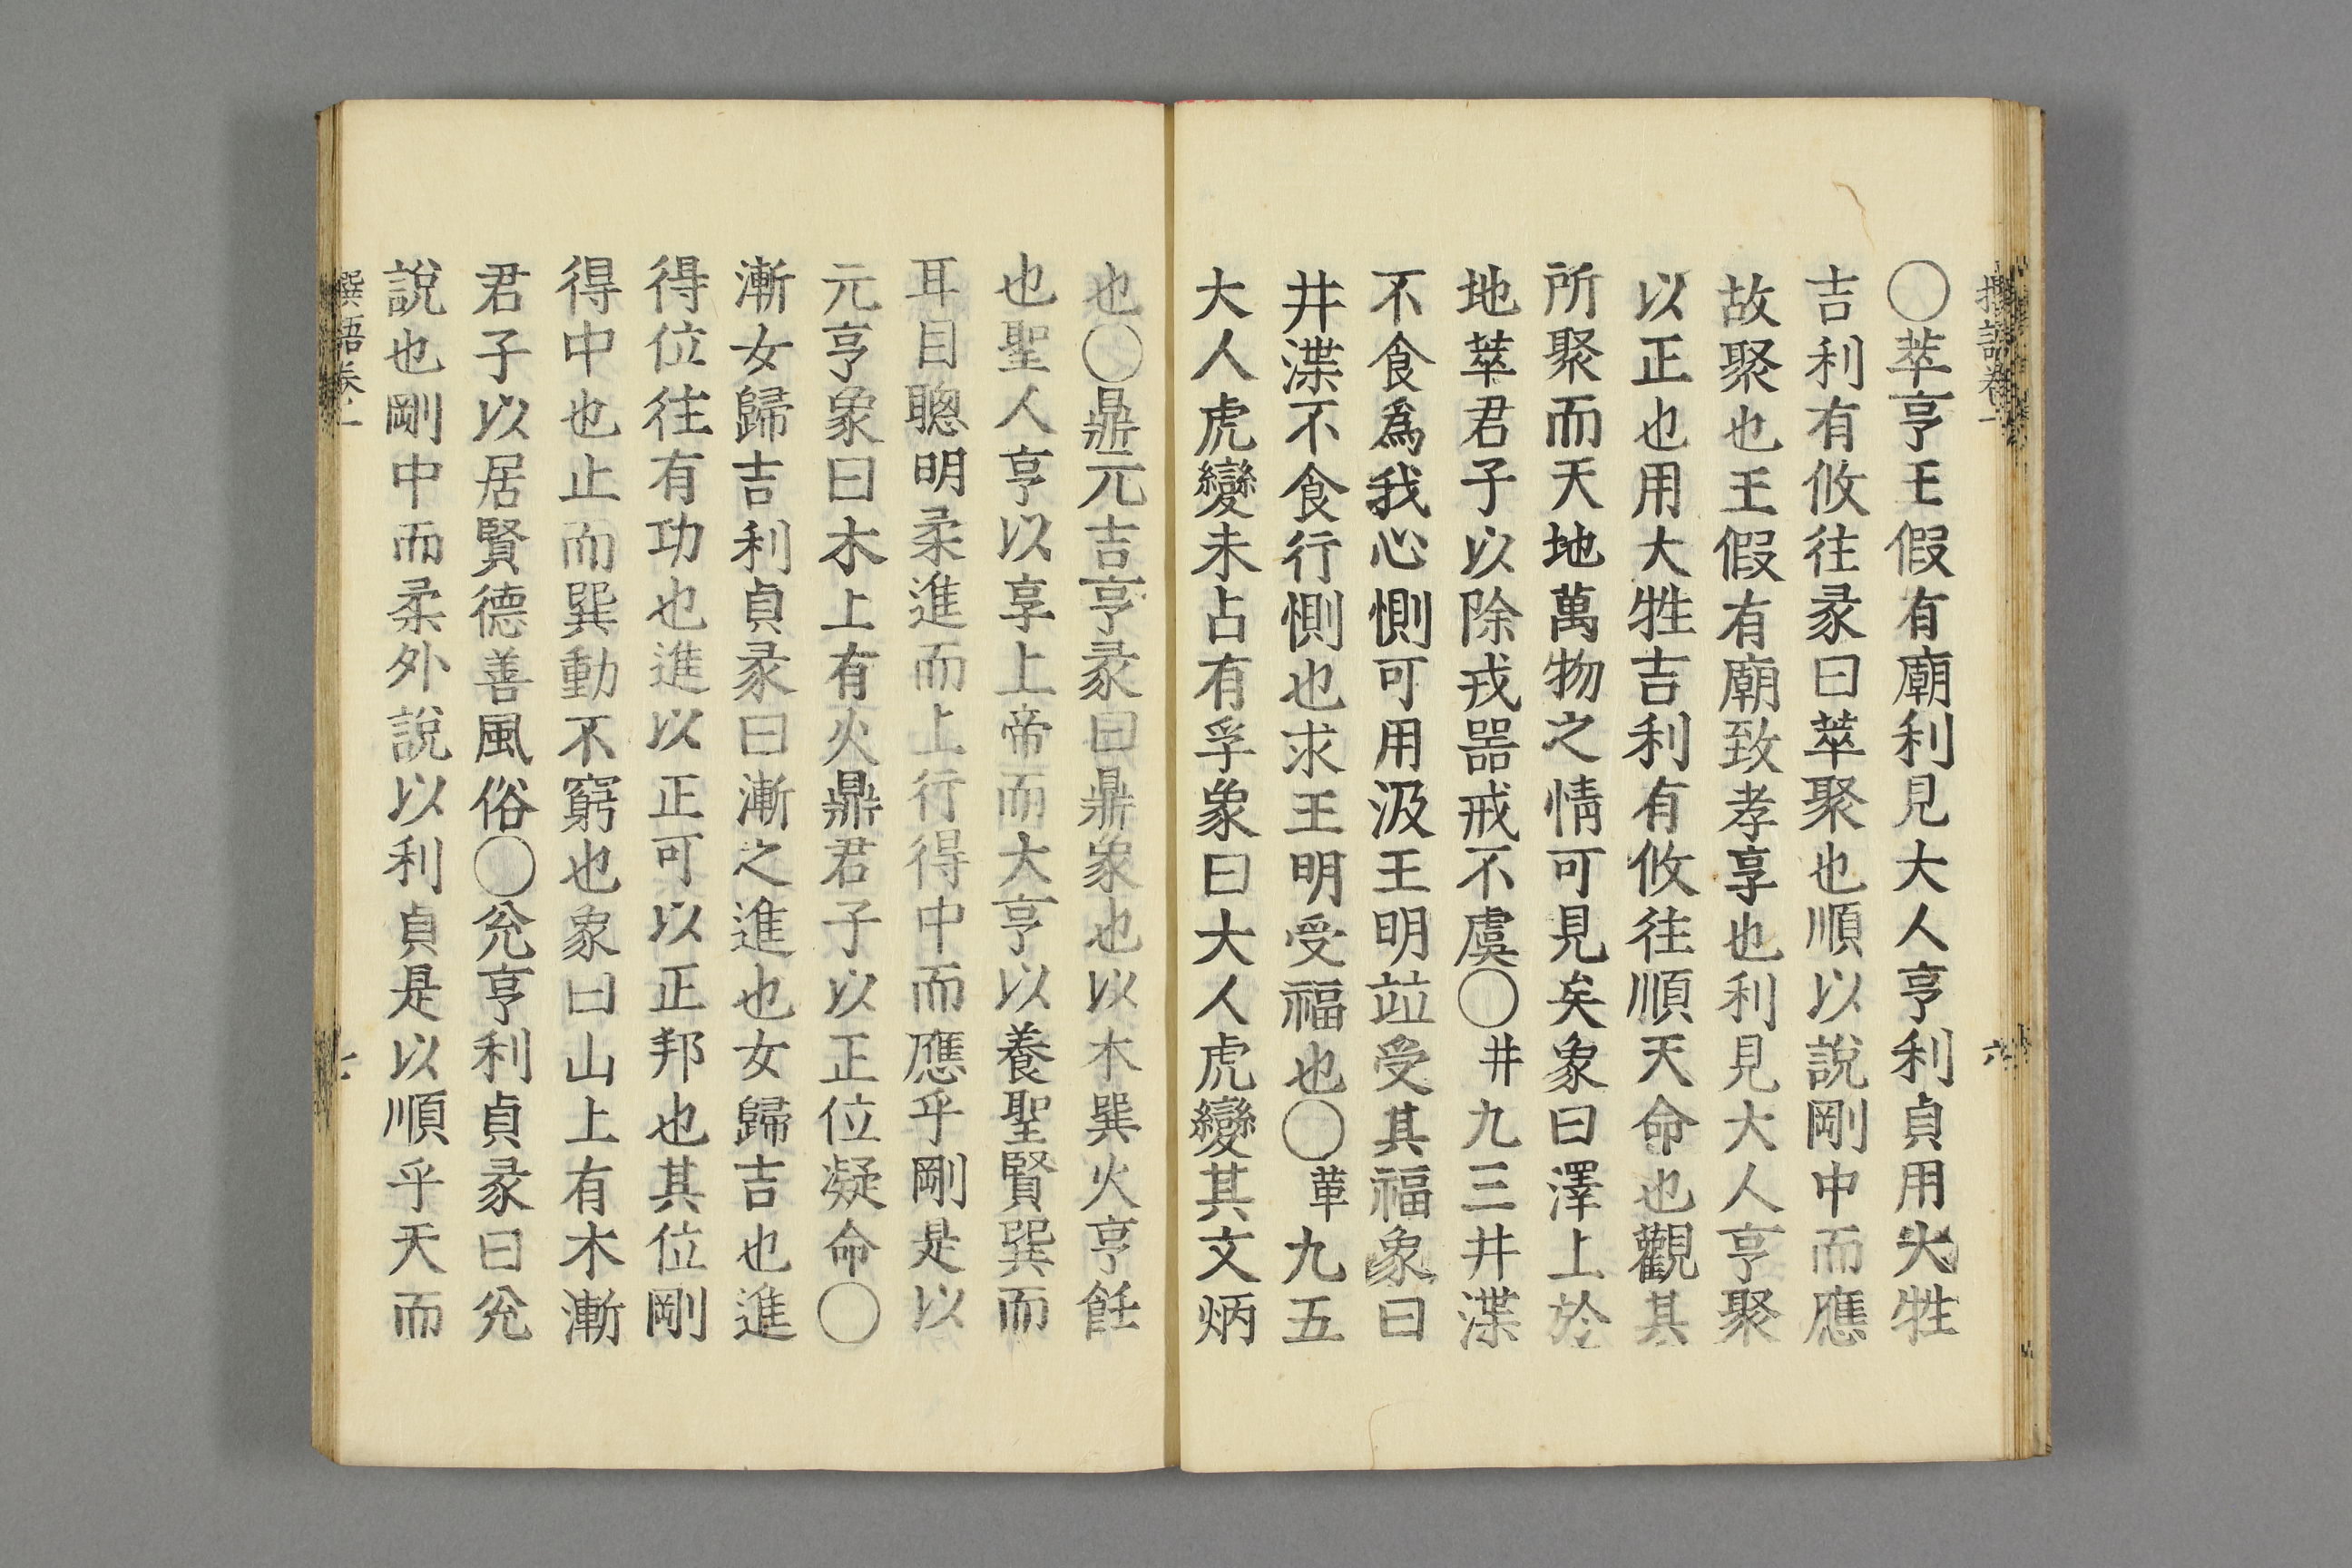 撰語卷一
六
〇萃亨王假有廟利見大人亨利貞用大牲
吉利有攸往彖曰萃聚也順以說剛中而應
故聚也王假有廟致孝享也利見大人亨聚
以正也用大牲吉利有攸往順天命也觀其
所聚而天地萬物之情可見矣象曰澤上於
地萃君子以除戎器戒不虞〇井九三井渫
不食爲我心惻可用汲王明竝受其福象曰
井渫不食行惻也求王明受福也〇革九五
大人虎變未占有孚象曰大人虎變其文炳
也〇鼎元吉亨彖曰鼎象也以木巽火亨飪
也聖人亨以享上帝而大亨以養聖賢巽而
耳目聰明柔進而上行得中而應乎剛是以
元亨象曰木上有火鼎君子以正位凝命〇
漸女歸吉利貞彖曰漸之進也女歸吉也進
得位往有功也進以正可以正邦也其位剛
得中也止而巽動不窮也象曰山上有木漸
君子以居賢德善風俗〇兌亨利貞彖曰兌
說也剛中而柔外說以利貞是以順乎天而
撰語卷一
七